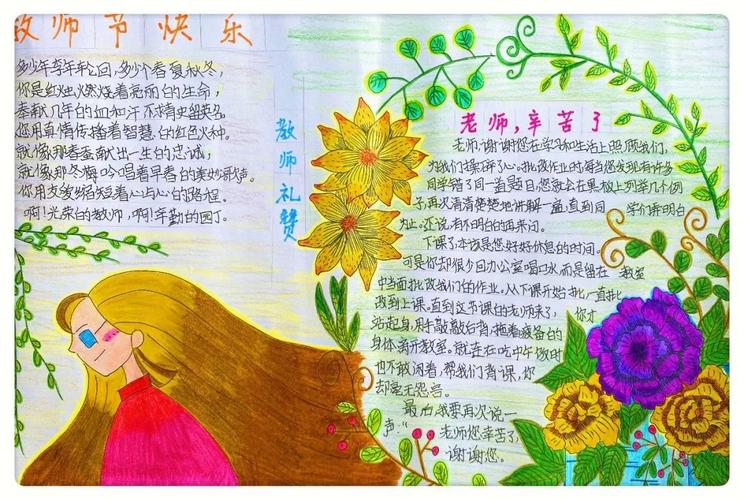 教师节快乐
多少年李年轮回,多少个春夏秋冬,
你是红烛燃烧着亮丽的生命,
奉献几年的血和汗不求青史留英名。
您用真情传播着智慧的红色火种。
就像那春蚕献出一生的忠诚,
就像那冬梅吟唱着早春的美妙歌声。
你用支爱缩短着心与心的路程。
啊!光荣的教师,啊!辛勤的园丁。
教师礼赞
老师,辛苦了
老师,谢谢您在学习和生活上照顾我们,
为我们操碎了心。批改作业时每当您发现有许多
同学错了同一道题目,您就会在黑板上列举几个例
子再次清清楚楚地讲解一遍,直到同学们弄明白
为止。还说有不明白的再来问。
下课了本该是您好好休息的时间。
可是你却很少回办公室喝口水而是留在教室
中当面批改我们的作业。从下课开始批一直批
改到上课。直到这节课的老师来了,你才
站起身,用手敲敲台背,拖着疲备的
身体离开教室。就连在吃中午饭时
也不敢闲着,帮我们背课,你
却毫无怨言。
最而我要再次说一
声:“老师您辛苦了,
谢谢您。